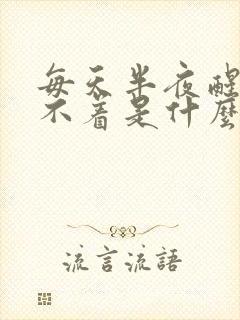 每天半夜醒
不着是什麼
流言流語